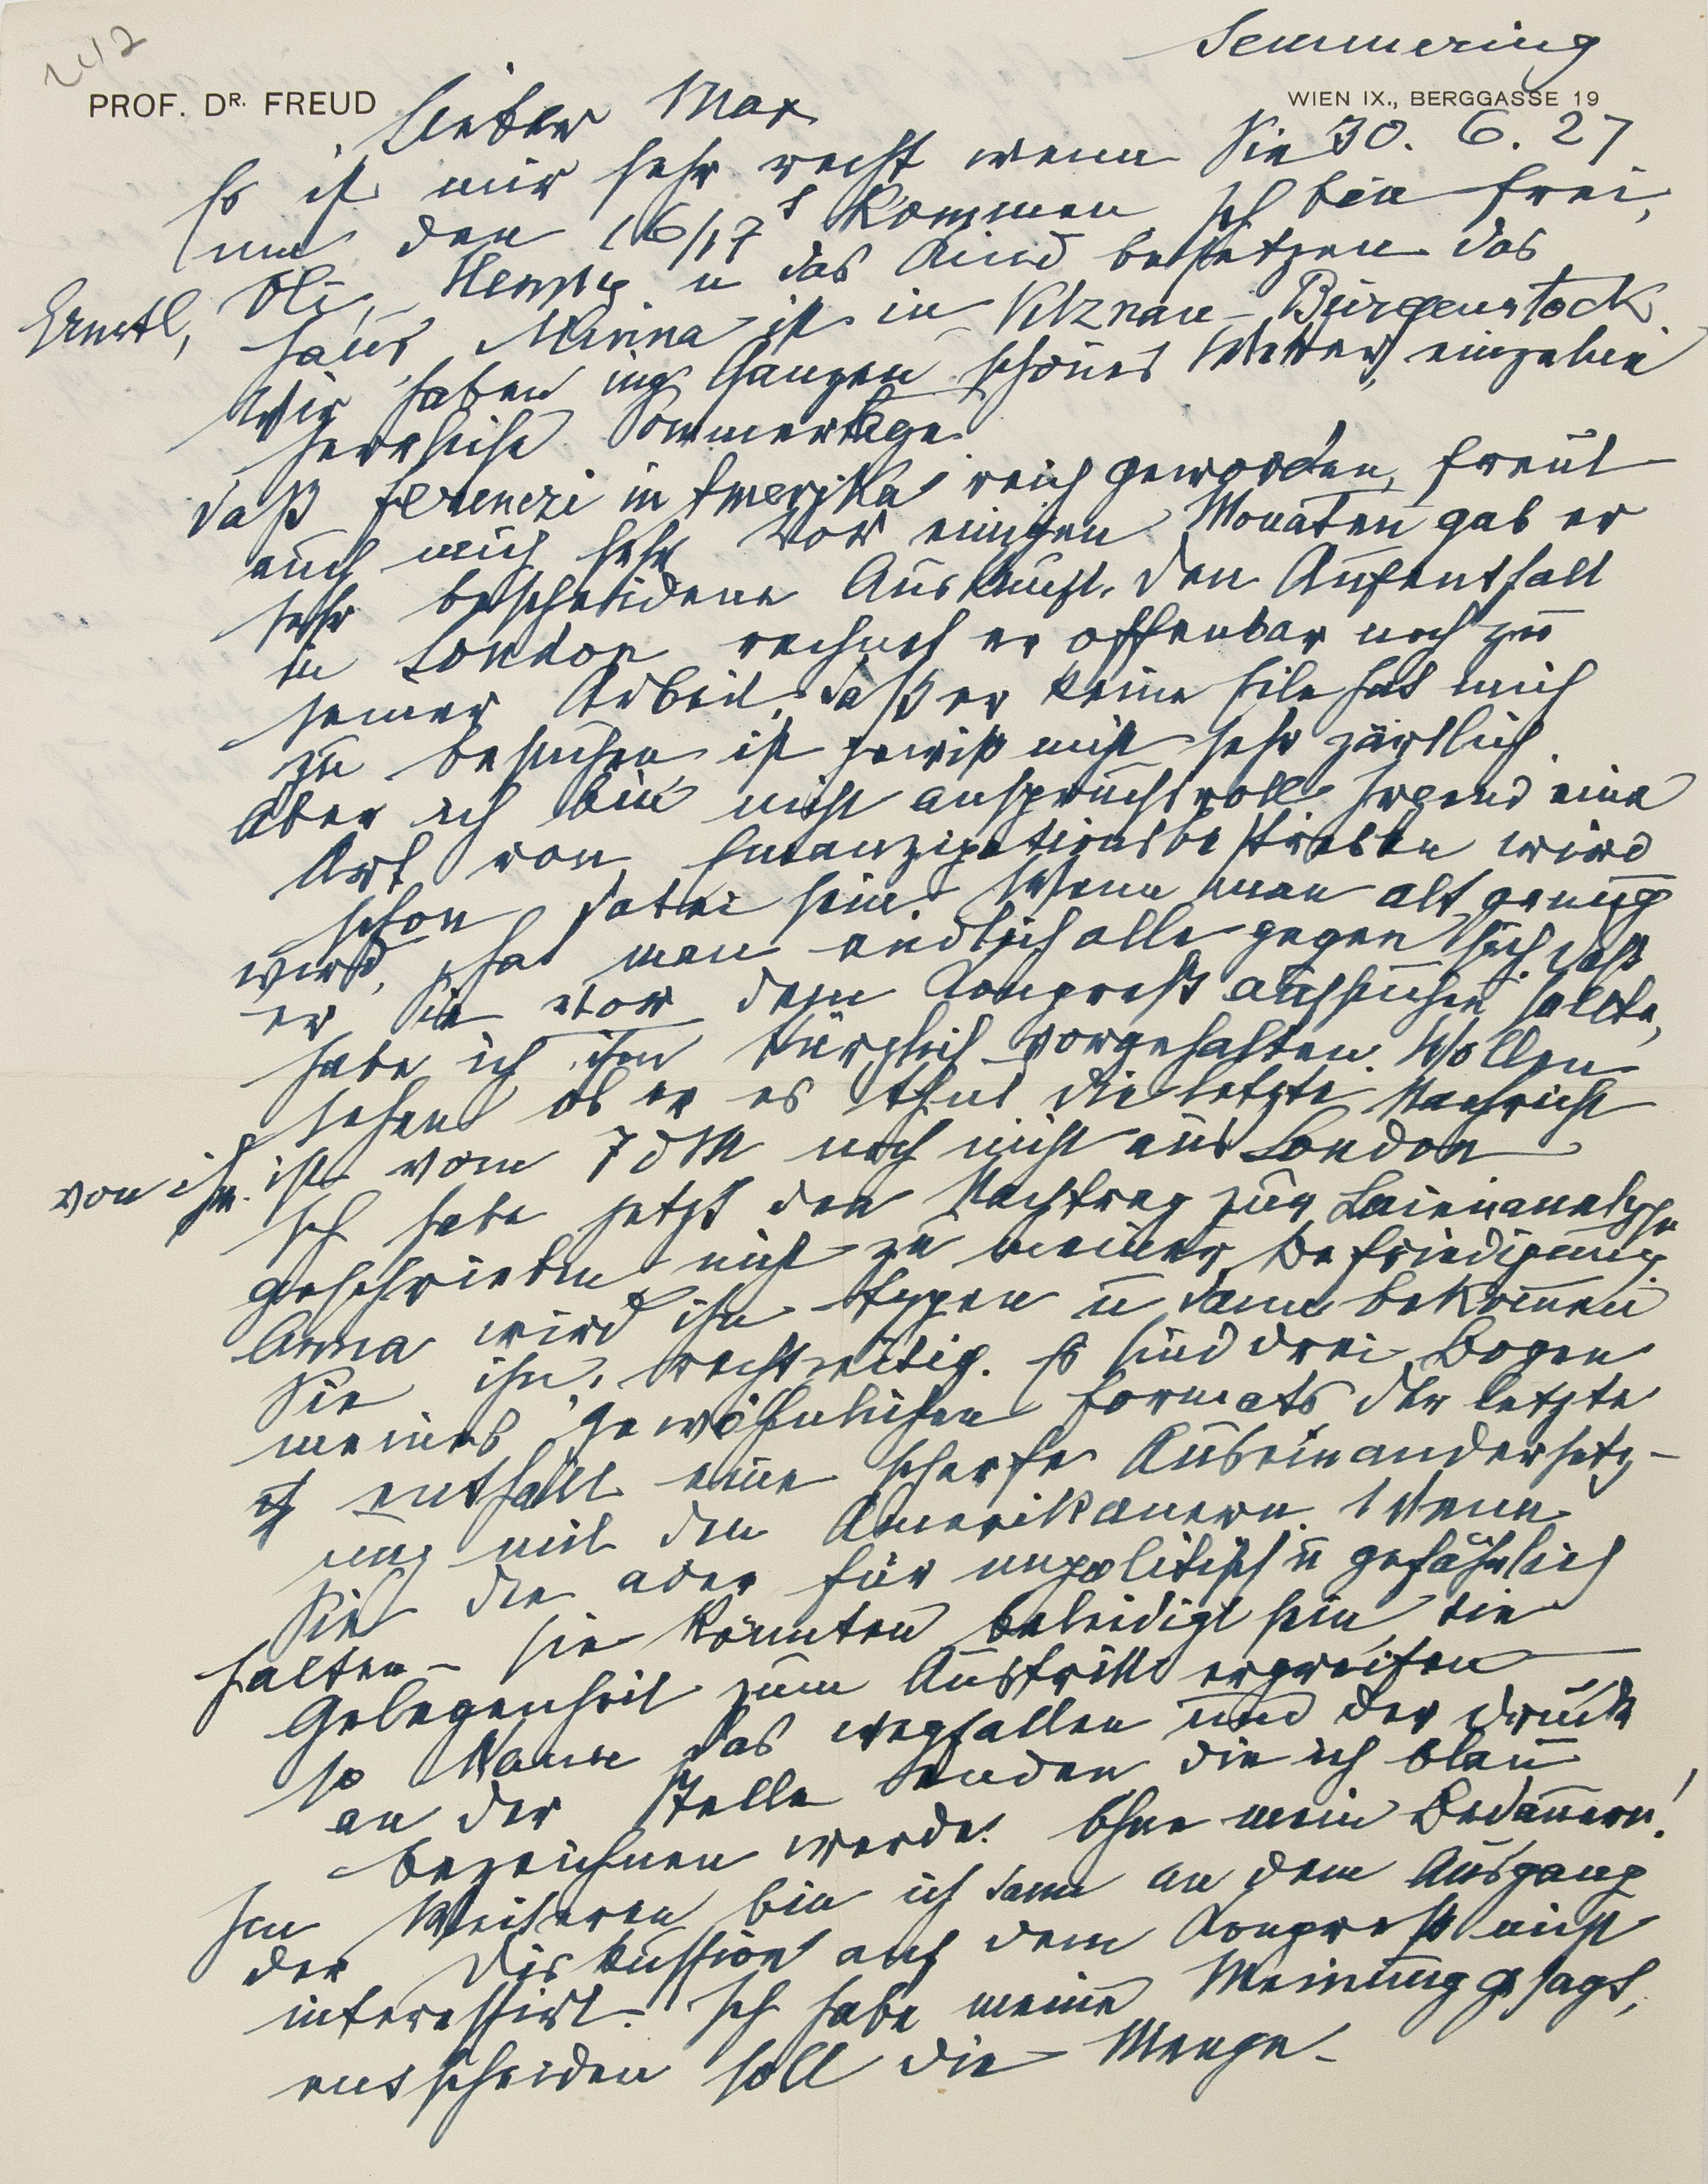 2112
Semmering
PROF. DR. FREUD
WIEN IX., BERGGASSE 19
30. 6. 27
Lieber Max
Es ist mir sehr recht wenn Sie
um den 16/17 t kommen Ich bin frei,
Ernstl, Oli, Henny u das Kind besetzen das
Haus, Minna ist in Vitznau-Bürgenstock
Wir haben im Ganzen schönes Wetter, einzelne
herrliche Sommertage.
Daß Ferenczi in Amerika reich geworden, freut
auch mich sehr Vor einigen Monaten gab er
sehr bescheidene Auskunft. Den Aufenthalt
in London rechnet er offenbar noch zu
seiner Arbeit. Daß er keine Eile hat mich
zu besuchen ist gewiß nicht sehr zärtlich.
Aber ich bin nicht anspruchsvoll. Irgend eine
Art von Emanzipationsbestreben wird
schon dabei sein. Wenn man alt genug
wird, hat man endlich alle gegen sich. Daß
er Sie vor dem Kongreß aufsuchen sollte,
habe ich ihm kürzlich vorgehalten. Wollen
sehen ob er es thut die letzte Nachricht
von ihm. ist vom 7 d M noch nicht aus London
Ich habe jetzt den Nachtrag zur Laienanalyse
geschrieben nicht zu meiner Befriedigung.
Anna wird ihn typen u dann bekommen
Sie ihn, rechtzeitig. Es sind drei Bogen
meines gewöhnlichen Formats, der letzte
enthält eine scharfe Auseinandersetz-
ung mit den Amerikanern. Wenn
Sie die aber für unpolitisch u gefährlich
halten – sie könnten beleidigt sein, die
Gelegenheit zum Austritt ergreifen –
so kann das wegfallen und der Druck
an der Stelle enden die ich blau
bezeichnen werde. Ohne mein Bedauern!
Im Weiteren bin ich dann an dem Ausgang
der Diskussion auf dem Kongreß nicht
interessirt. Ich habe meine Meinung gesagt,
entscheiden soll die Menge.